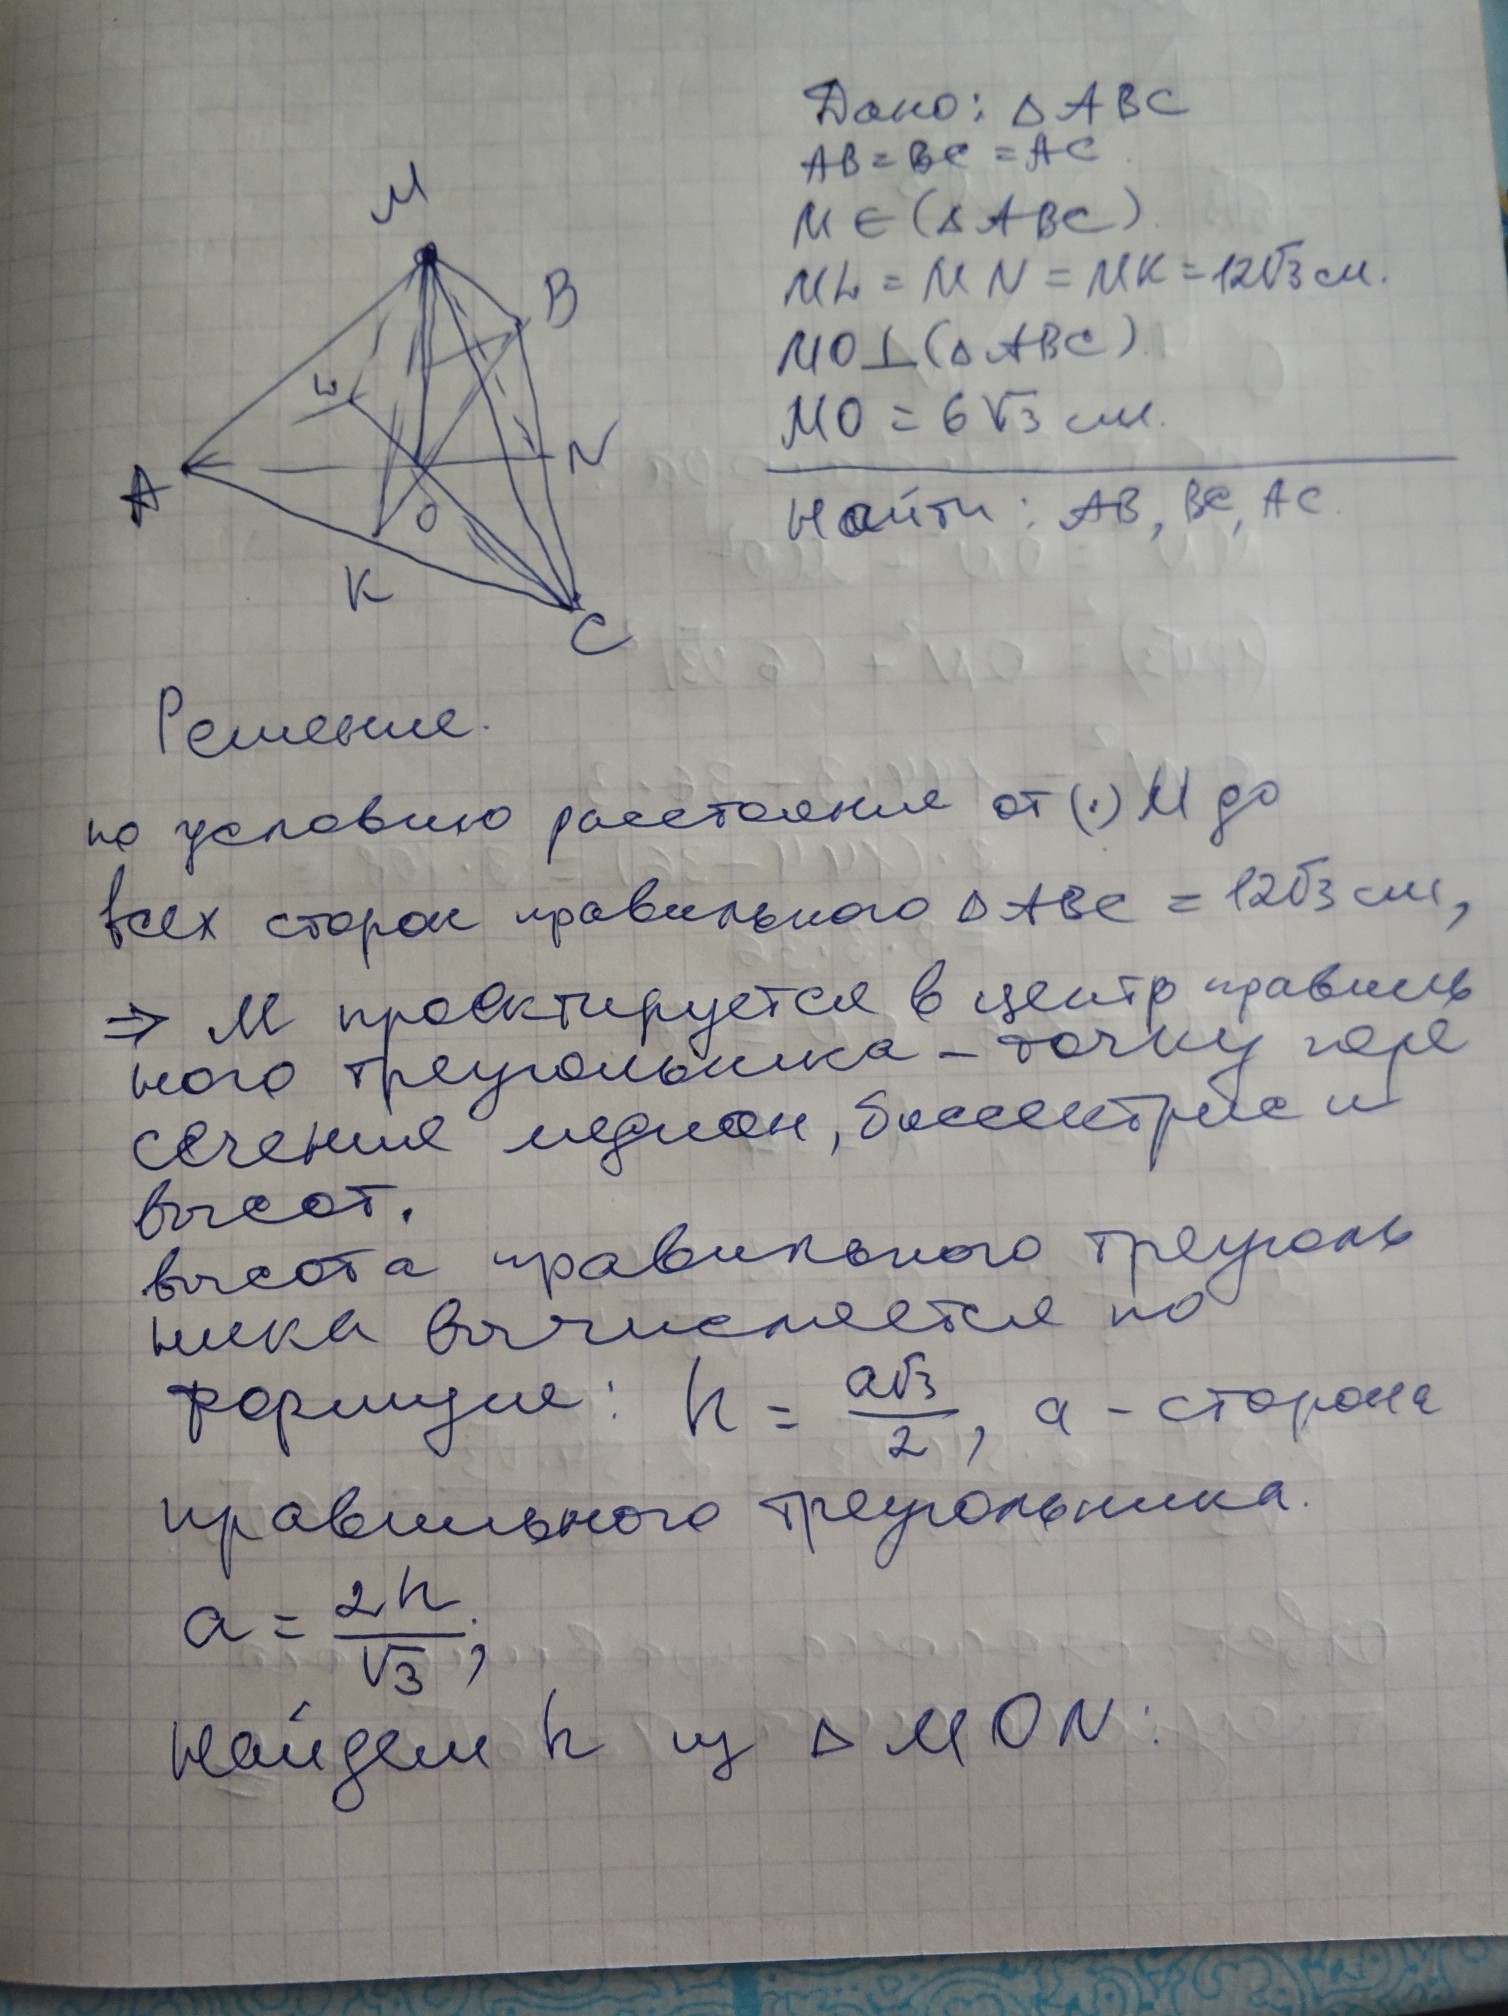 M
B
L
A
N
O
K
C
Дано: △ ABC
AB = BC = AC
M ∈ (△ ABC)
ML = MN = MK = 12√3 см.
MO ⊥ (△ ABC)
MO = 6√3 см.
Найти: AB, BC, AC.
Решение.
по условию расстояние от (·) M до
всех сторон правильного △ ABC = 12√3 см,
⇒ M проектируется в центр правиль
ного треугольника – точку пере
сечения медиан, биссектрис и
высот.
высота правильного треуголь
ника вычисляется по
формуле: h = a√3/2, a – сторона
правильного треугольника.
a = 2h/√3;
Найдем h из △ MON: